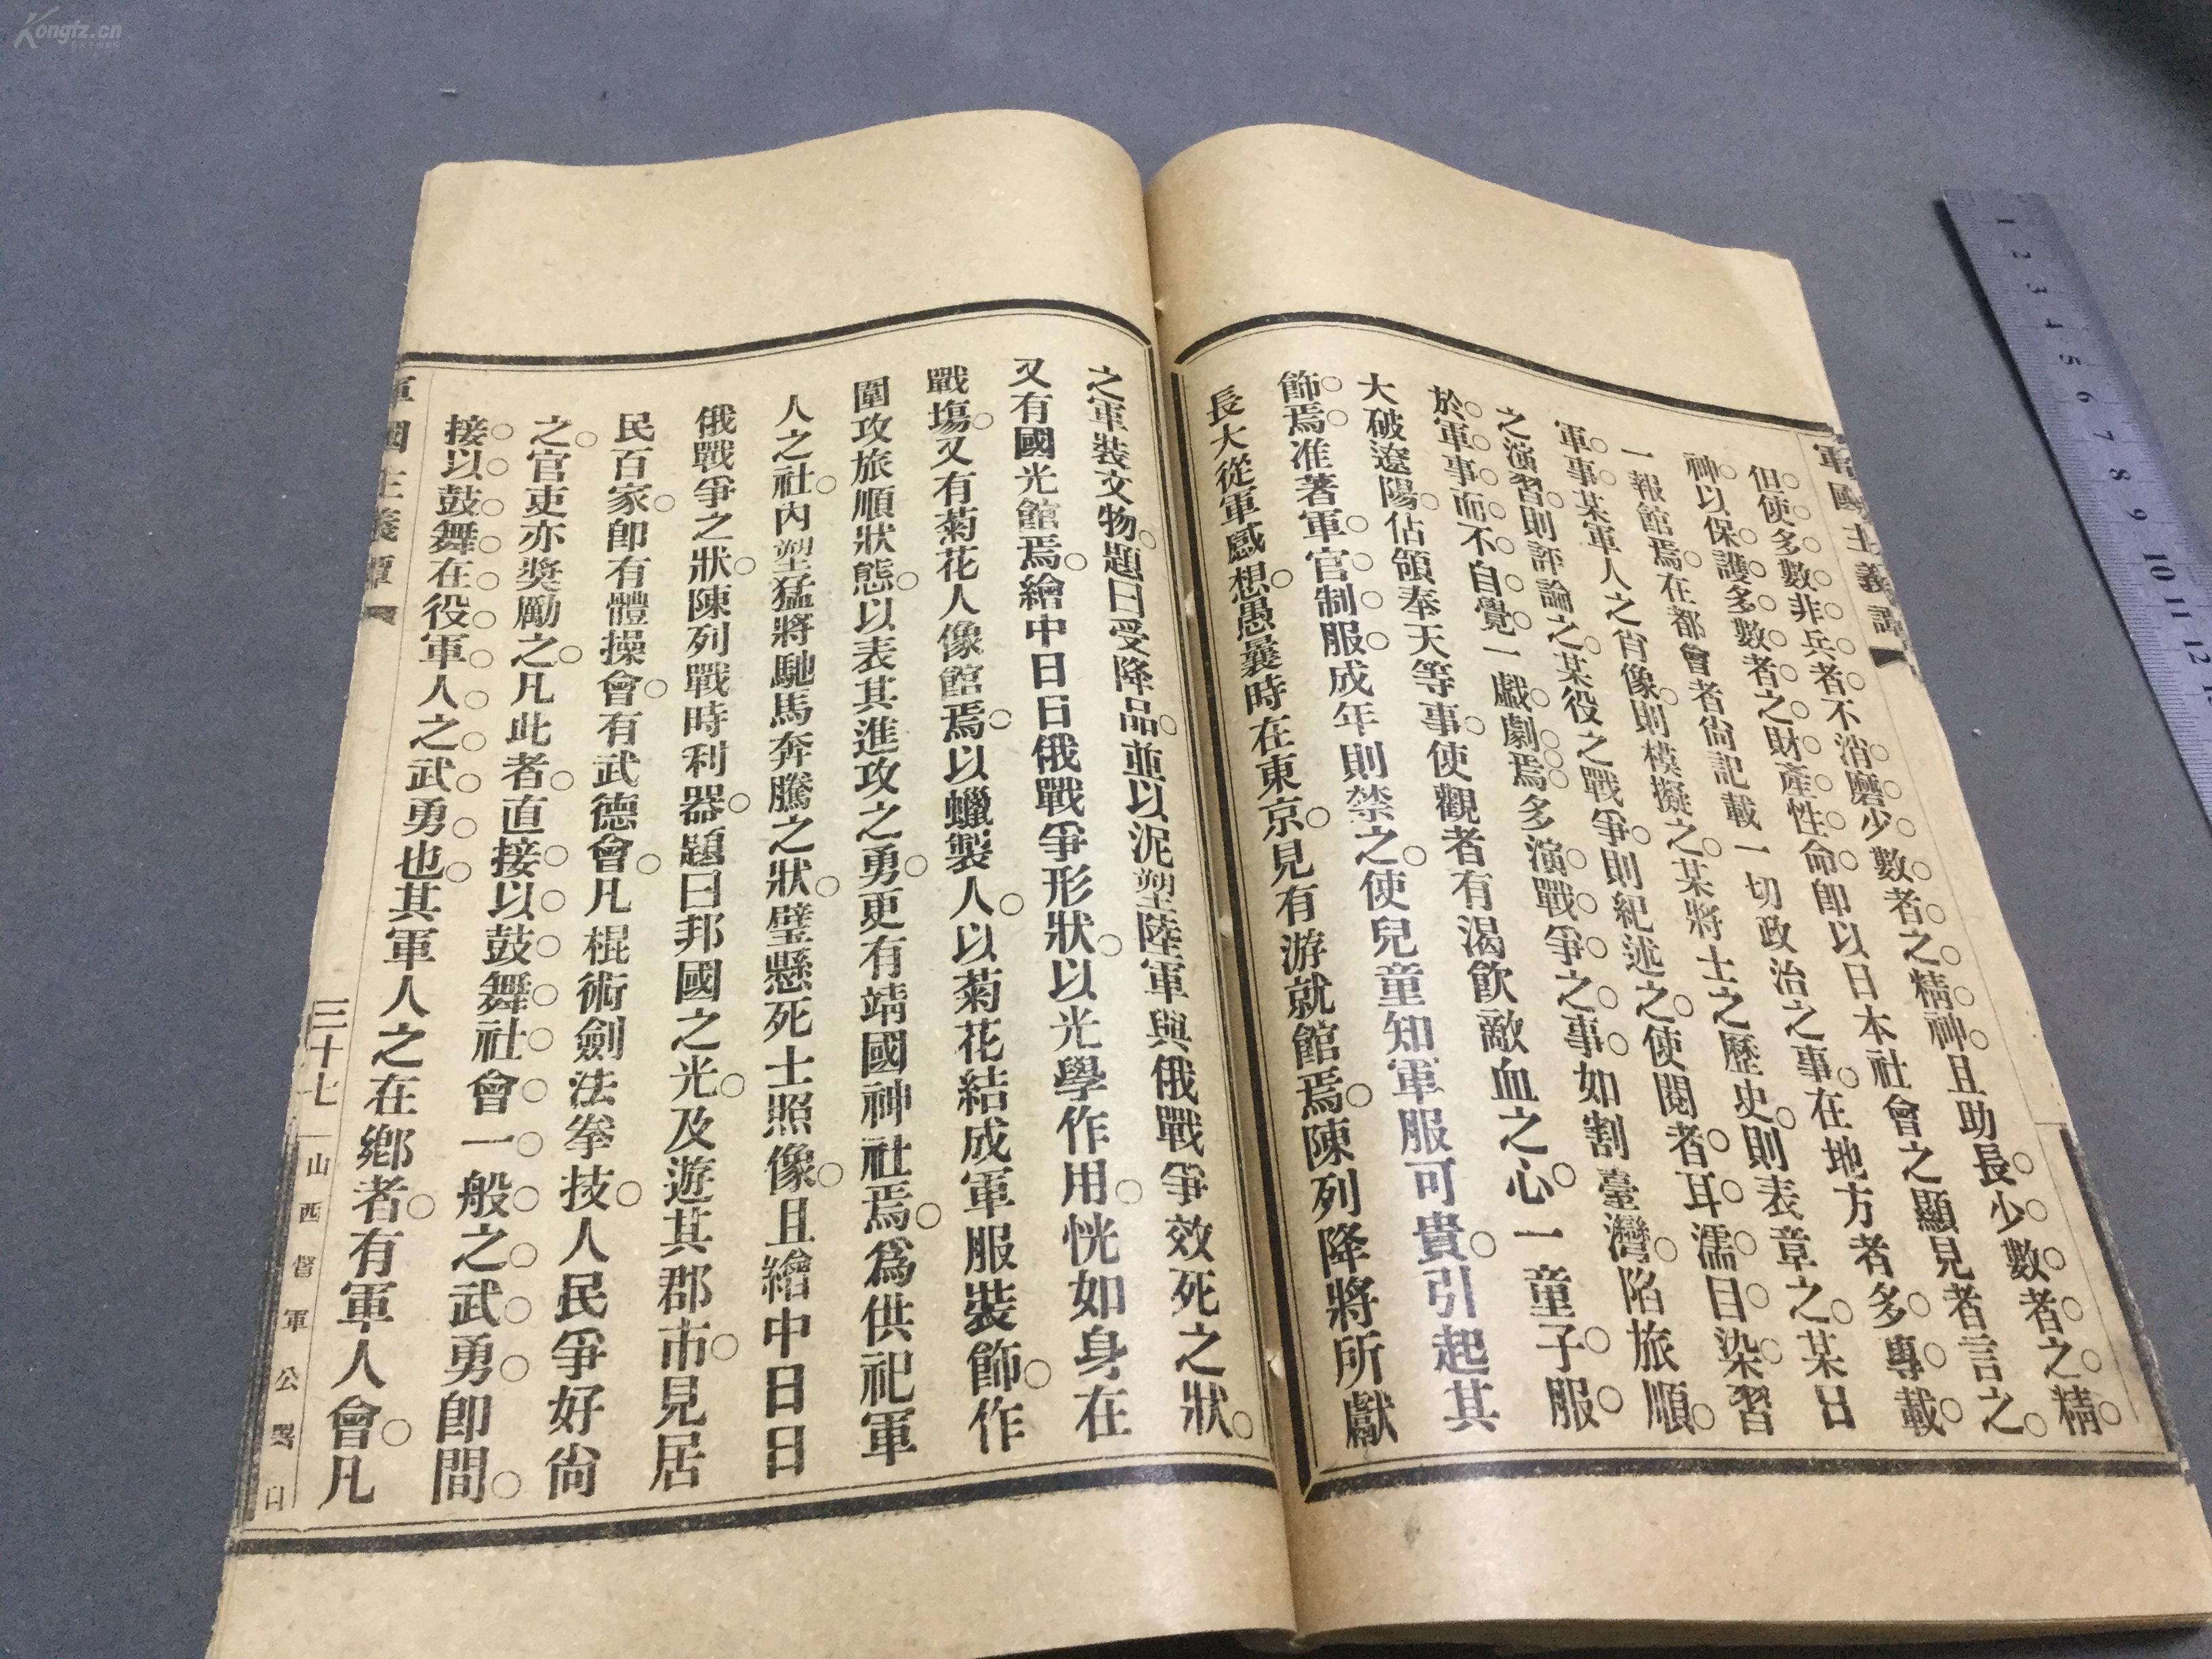 軍國主義譚
但使多數非兵者不消磨少數者之精神且助長少數者之精
神以保護多數者之財產性命卽以日本社會之顯見者言之
一報館焉在都會者尙記載一切政治之事在地方者多專載
軍事某軍人之肖像則模擬之某將士之歷史則表章之某日
之演習則評論之某役之戰爭則紀述之使閱者耳濡目染習
於軍事而不自覺一戲劇焉多演戰爭之事如割臺灣陷旅順
大破遼陽佔領奉天等事使觀者有渴飮敵血之心一童子服
飾焉准著軍官制服成年則禁之使兒童知軍服可貴引起其
長大從軍感想愚曩時在東京見有游就館焉陳列降將所獻
之軍裝文物題曰受降品並以泥塑陸軍與俄戰爭效死之狀
又有國光館焉繪中日日俄戰爭形狀以光學作用恍如身在
戰塲又有菊花人像館焉以蠟製人以菊花結成軍服裝飾作
圍攻旅順狀態以表其進攻之勇更有靖國神社焉爲供祀軍
人之社內塑猛將馳馬奔騰之狀壁懸死士照像且繪中日日
俄戰爭之狀陳列戰時利器題曰邦國之光及遊其郡市見居
民百家卽有體操會有武德會凡棍術劍法拳技人民爭好尙
之官吏亦奬勵之凡此者直接以鼓舞社會一般之武勇卽間
接以鼓舞在役軍人之武勇也其軍人之在鄕者有軍人會凡
軍國主義譚
三十七
山西督軍公署